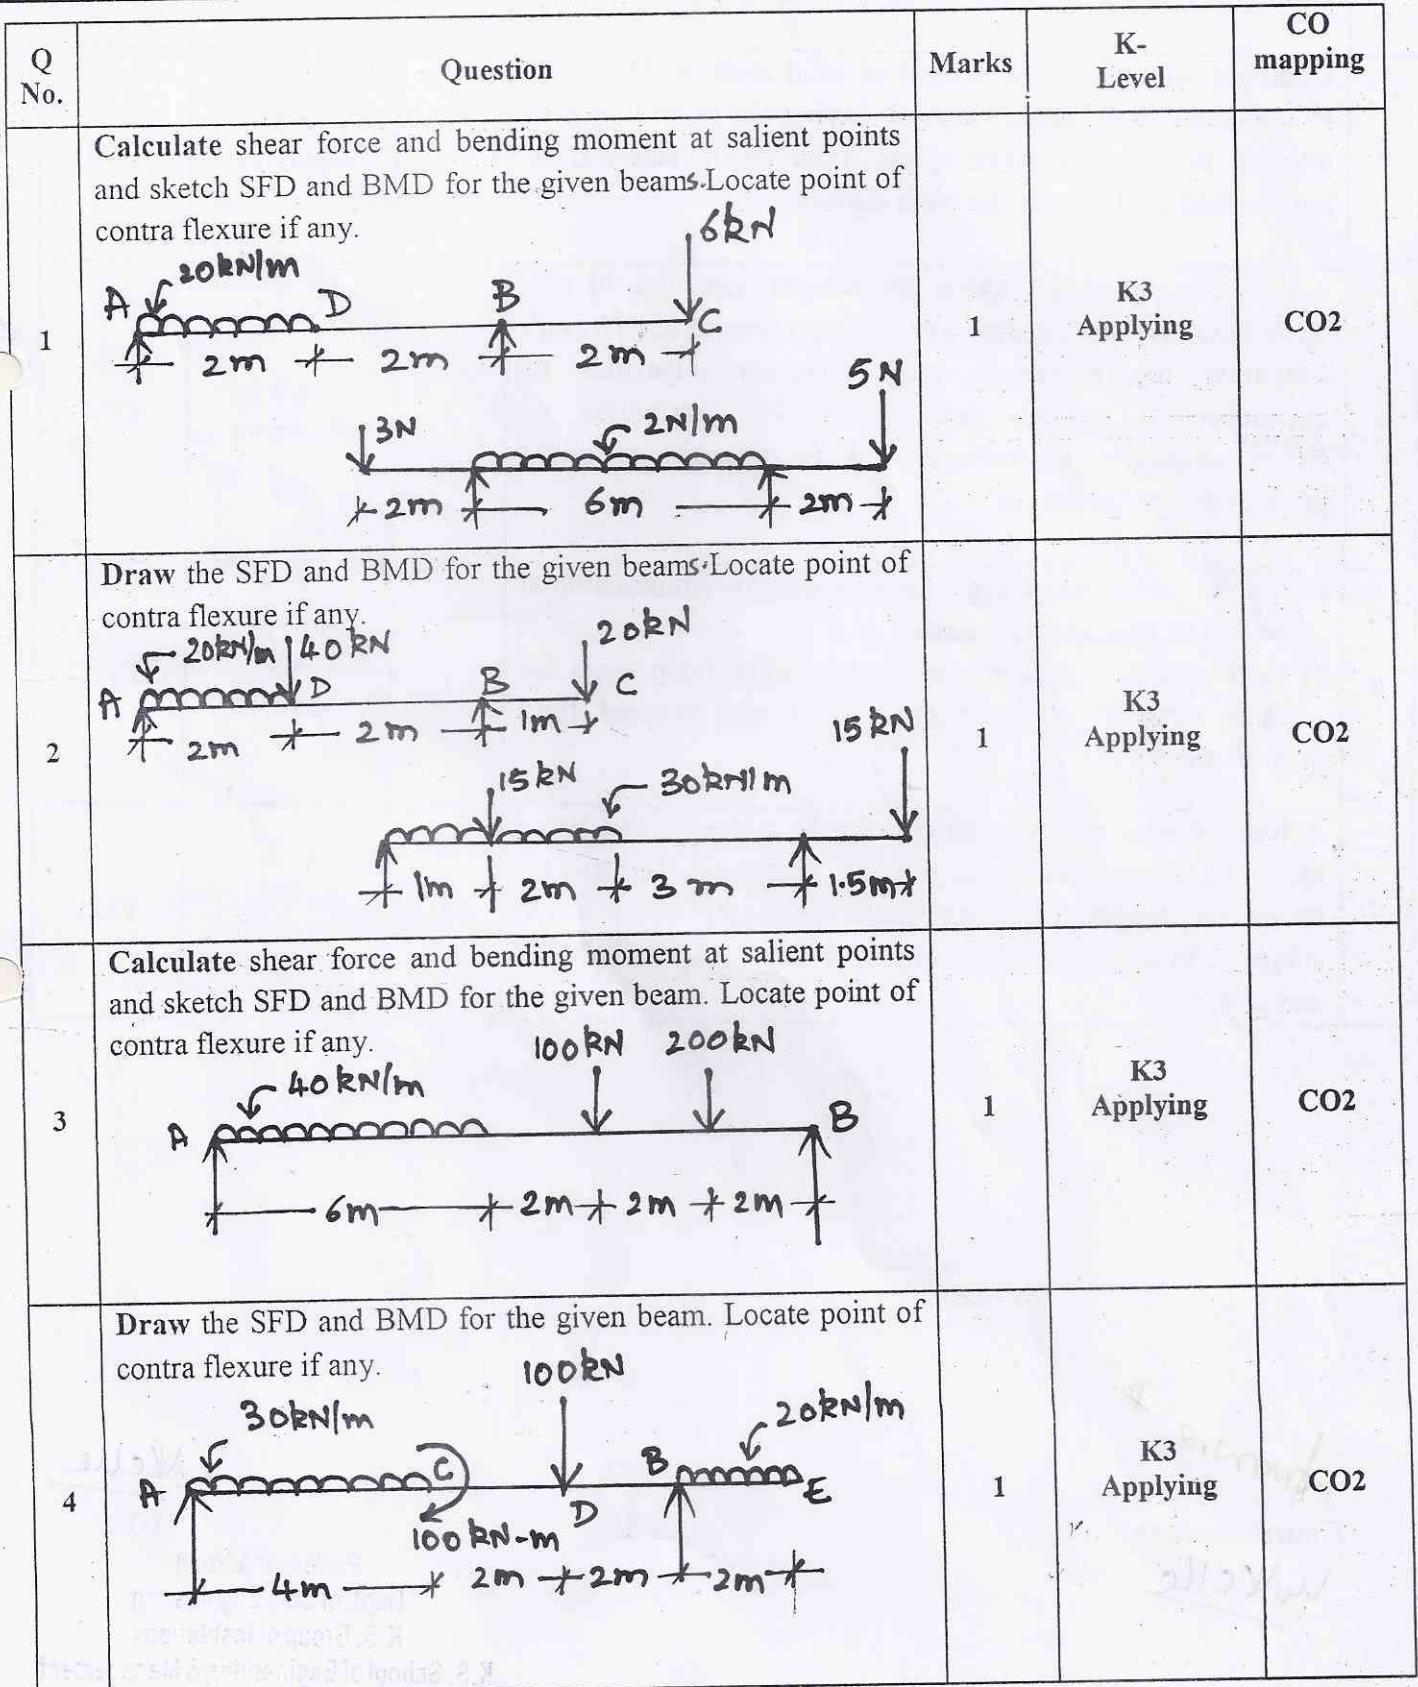 Q No.
Question
Marks
K-Level
CO mapping
1
Calculate shear force and bending moment at salient points
and sketch SFD and BMD for the given beams. Locate point of
contra flexure if any.
6kN
20kN/m
A
D
B
C
2m
2m
2m
5N
3N
2N/m
2m
6m
2m
1
K3
Applying
CO2
2
Draw the SFD and BMD for the given beams. Locate point of
contra flexure if any.
20kN/m
40kN
20kN
A
D
B
C
2m
2m
1m
15kN
15kN
30kN/m
1m
2m
3m
1.5m
1
K3
Applying
CO2
3
Calculate shear force and bending moment at salient points
and sketch SFD and BMD for the given beam. Locate point of
contra flexure if any.
100kN
200kN
40kN/m
A
B
6m
2m
2m
2m
1
K3
Applying
CO2
4
Draw the SFD and BMD for the given beam. Locate point of
contra flexure if any.
100kN
30kN/m
20kN/m
A
C
B
E
D
100kN-m
4m
2m
2m
2m
1
K3
Applying
CO2
K.S. School of Engineering & Management